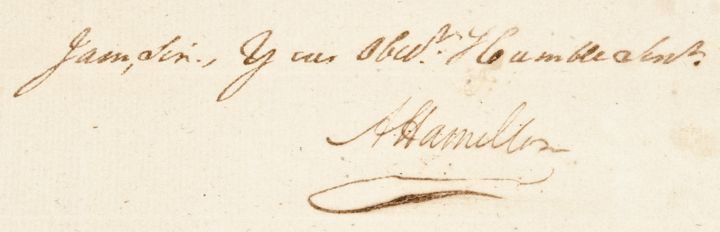 I am, Sir., Your Obedt. Humble Servt.
A Hamilton